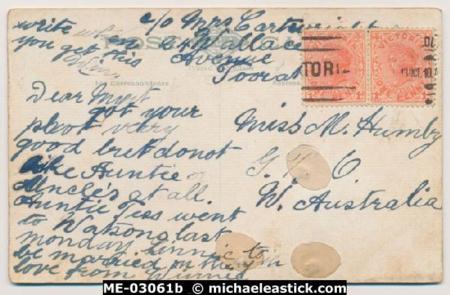 c/o Mrs Cartwright
write when
you get this
Wallace
Avenue
Toorak
POST CARD
VICTORIA
TORI
Dear Myrt
Got your
photo very
good but do not
like Auntie or
Uncle's at all.
Auntie Tess went
to Watsons last
monday
be married in the
love from
Miss M. Humby
G. P. O
W. Australia
ME-03061b © michaeleastick.com